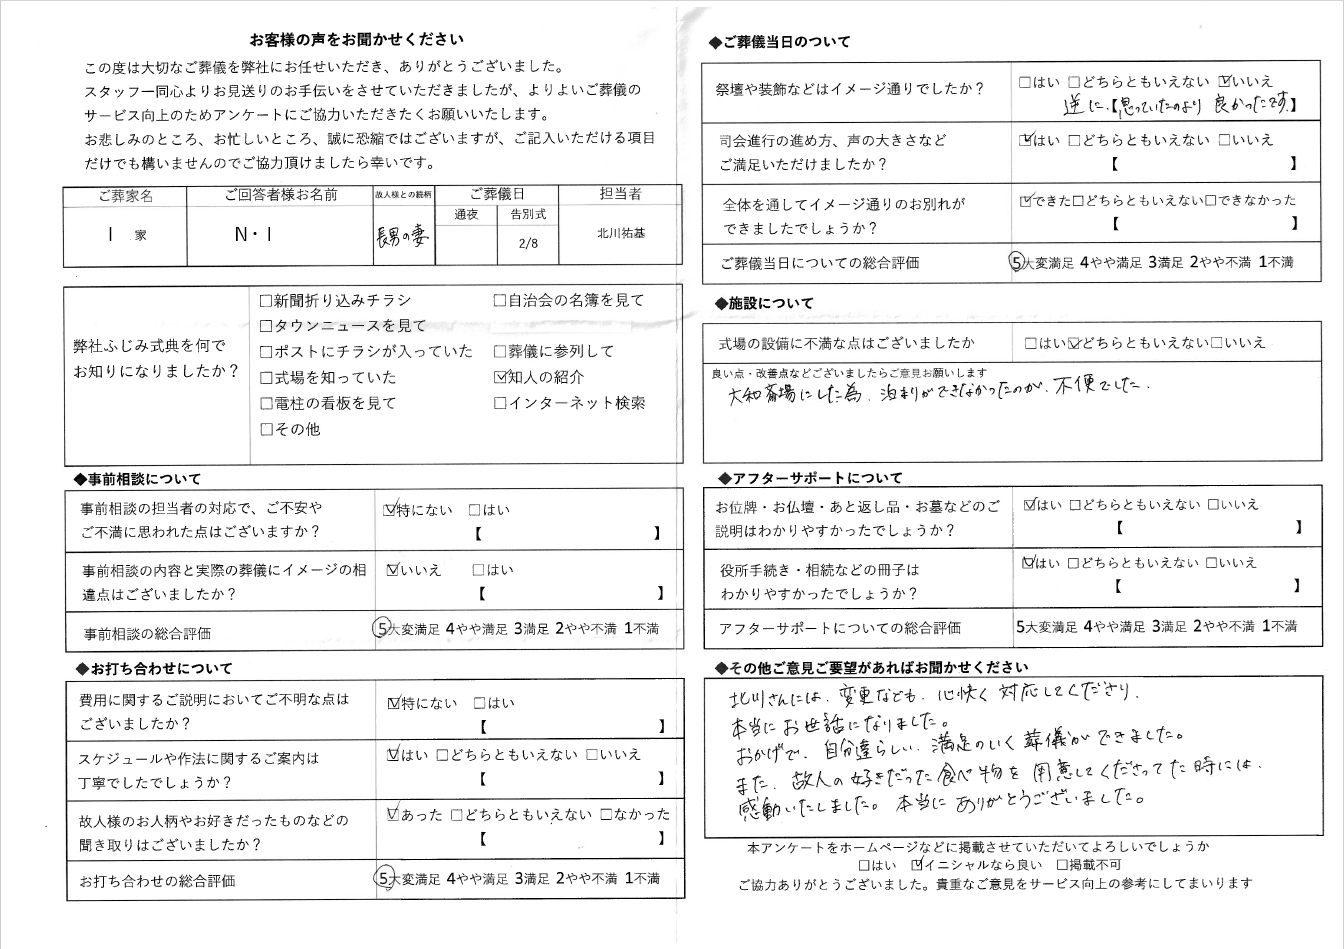 お客様の声をお聞かせください
この度は大切なご葬儀を弊社にお任せいただき、ありがとうございました。
スタッフ一同心よりお見送りのお手伝いをさせていただきましたが、よりよいご葬儀の
サービス向上のためアンケートにご協力いただきたくお願いいたします。
お悲しみのところ、お忙しいところ、誠に恐縮ではございますが、ご記入いただける項目
だけでも構いませんのでご協力頂けましたら幸いです。
ご葬家名 ご回答者様お名前 故人様との続柄 ご葬儀日 担当者
通夜 告別式
I 家 N・I 長男の妻 2/8 北川祐基
弊社ふじみ式典を何で
お知りになりましたか？
□新聞折り込みチラシ □自治会の名簿を見て
□タウンニュースを見て
□ポストにチラシが入っていた □葬儀に参列して
□式場を知っていた ☑知人の紹介
□電柱の看板を見て □インターネット検索
□その他
◆事前相談について
事前相談の担当者の対応で、ご不安や
ご不満に思われた点はございますか？
☑特にない □はい
【 】
事前相談の内容と実際の葬儀にイメージの相
違点はございましたか？
☑いいえ □はい
【 】
事前相談の総合評価 ⑤大変満足 4やや満足 3満足 2やや不満 1不満
◆お打ち合わせについて
費用に関するご説明においてご不明な点は
ございましたか？
☑特にない □はい
【 】
スケジュールや作法に関するご案内は
丁寧でしたでしょうか？
☑はい □どちらともいえない □いいえ
【 】
故人様のお人柄やお好きだったものなどの
聞き取りはございましたか？
☑あった □どちらともいえない □なかった
【 】
お打ち合わせの総合評価 ⑤大変満足 4やや満足 3満足 2やや不満 1不満
◆ご葬儀当日のついて
祭壇や装飾などはイメージ通りでしたか？
□はい □どちらともいえない ☑いいえ
逆に、【思っていたのより 良かったです】
司会進行の進め方、声の大きさなど
ご満足いただけましたか？
☑はい □どちらともいえない □いいえ
【 】
全体を通してイメージ通りのお別れが
できましたでしょうか？
☑できた□どちらともいえない□できなかった
【 】
ご葬儀当日についての総合評価 ⑤大変満足 4やや満足 3満足 2やや不満 1不満
◆施設について
式場の設備に不満な点はございましたか □はい☑どちらともいえない□いいえ
良い点・改善点などございましたらご意見お願いします
大和斎場にした為、泊まりができなかったのが、不便でした.
◆アフターサポートについて
お位牌・お仏壇・あと返し品・お墓などのご
説明はわかりやすかったでしょうか？
☑はい □どちらともいえない □いいえ
【 】
役所手続き・相続などの冊子は
わかりやすかったでしょうか？
☑はい □どちらともいえない □いいえ
【 】
アフターサポートについての総合評価 5大変満足 4やや満足 3満足 2やや不満 1不満
◆その他ご意見ご要望があればお聞かせください
北川さんには、変更なども、心快く対応してくださり、
本当にお世話になりました。
おかげで、自分達らしい、満足のいく葬儀ができました。
また、故人の好きだった食べ物を用意してくださってた時には、
感動いたしました。本当にありがとうございました。
本アンケートをホームページなどに掲載させていただいてよろしいでしょうか
□はい ☑イニシャルなら良い □掲載不可
ご協力ありがとうございました。貴重なご意見をサービス向上の参考にしてまいります